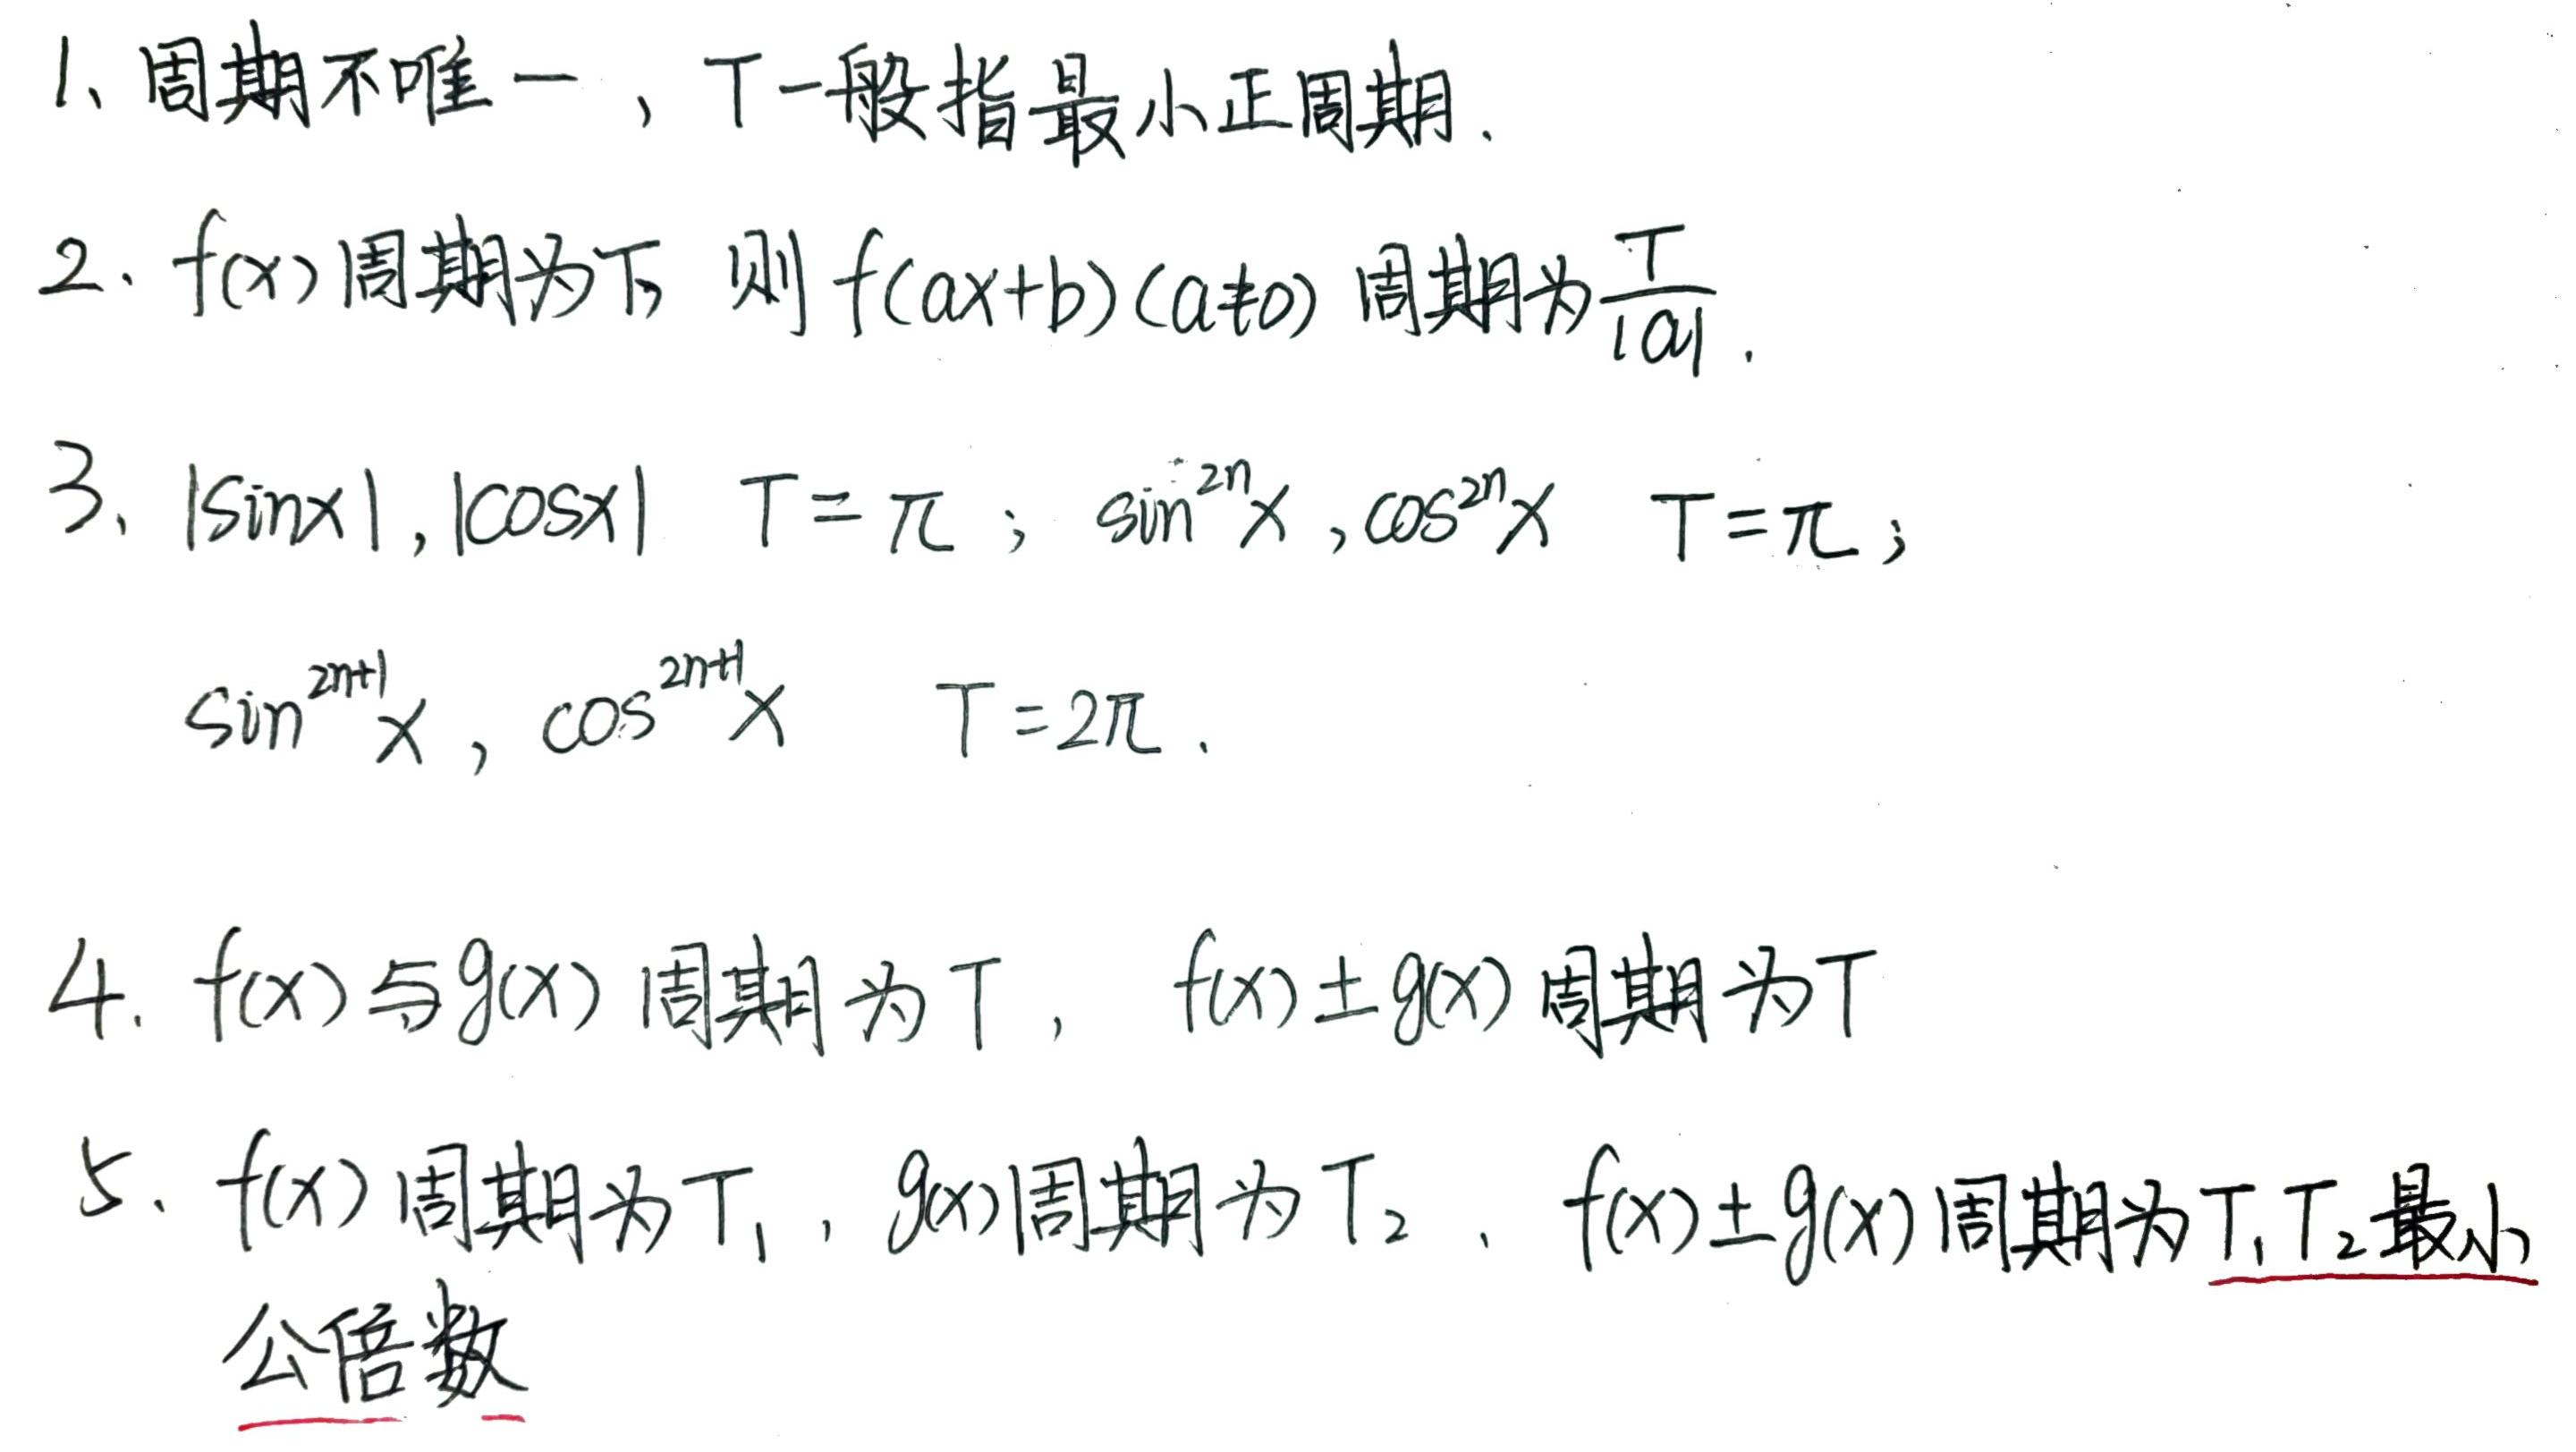 1、周期不唯一，T一般指最小正周期．
2、f(x)周期为T，则f(ax+b)(a≠0)周期为T/|a|．
3、|sinx|,|cosx| T=π；sin²ⁿx,cos²ⁿx T=π；
sin²ⁿ⁺¹x，cos²ⁿ⁺¹x T=2π．
4．f(x)与g(x)周期为T，f(x)±g(x)周期为T
5、f(x)周期为T₁，g(x)周期为T₂、f(x)±g(x)周期为T₁T₂最小
公倍数